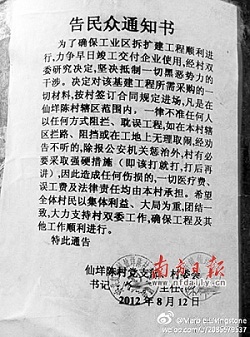 告民众通知书
为了确保工业区拆扩建工程顺利进
行,力争早日竣工交付企业使用,经村双
委研究决定,坚决抵制一切黑恶势力的
干涉。决定对该基建工程所需采购的一
切材料,按村签订合同规定进场,凡是在
仙垟陈村辖区范围内,一律不准任何人
以任何方式阻拦、耽误工程,如在本村辖
区拦路、阻挡或在工地上无理取闹,经劝
告不听的,除报公安机关惩治外,村有必
要采取强硬措施(即该打就打,打后再
讲),因此造成任何伤损的,一切医疗费、
误工费及法律责任均由本村承担。希望
全体村民以集体利益、大局为重,团结一
致,大力支持村双委工作,确保工程及其
他工作顺利进行。
特此通告
仙垟陈村党支部 村委会
书记 主任
2012年8月12日
南方日报
www.nfdaily.cn